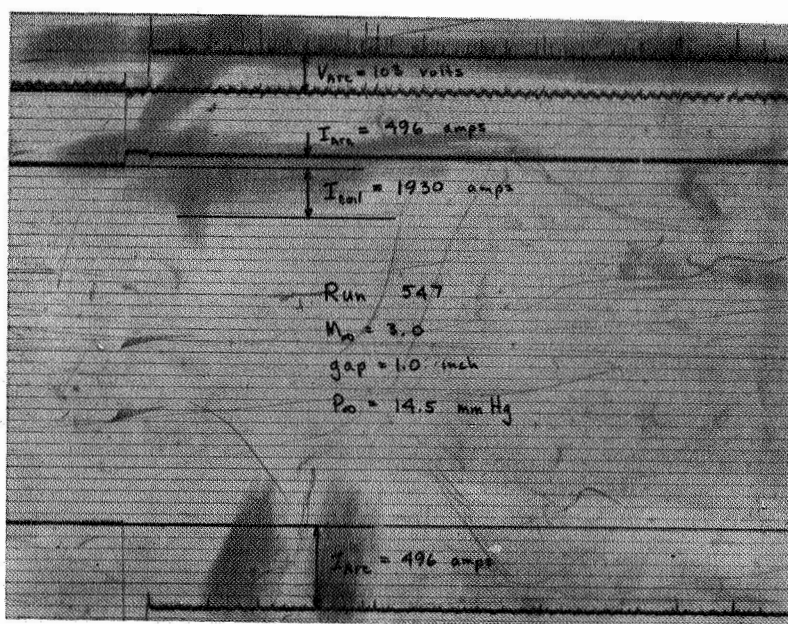 V_Arc = 103 volts
I_Arc = 496 amps
I_coil = 1930 amps
Run 547
M_∞ = 3.0
gap = 1.0 inch
P_∞ = 14.5 mm Hg
I_Arc = 496 amps